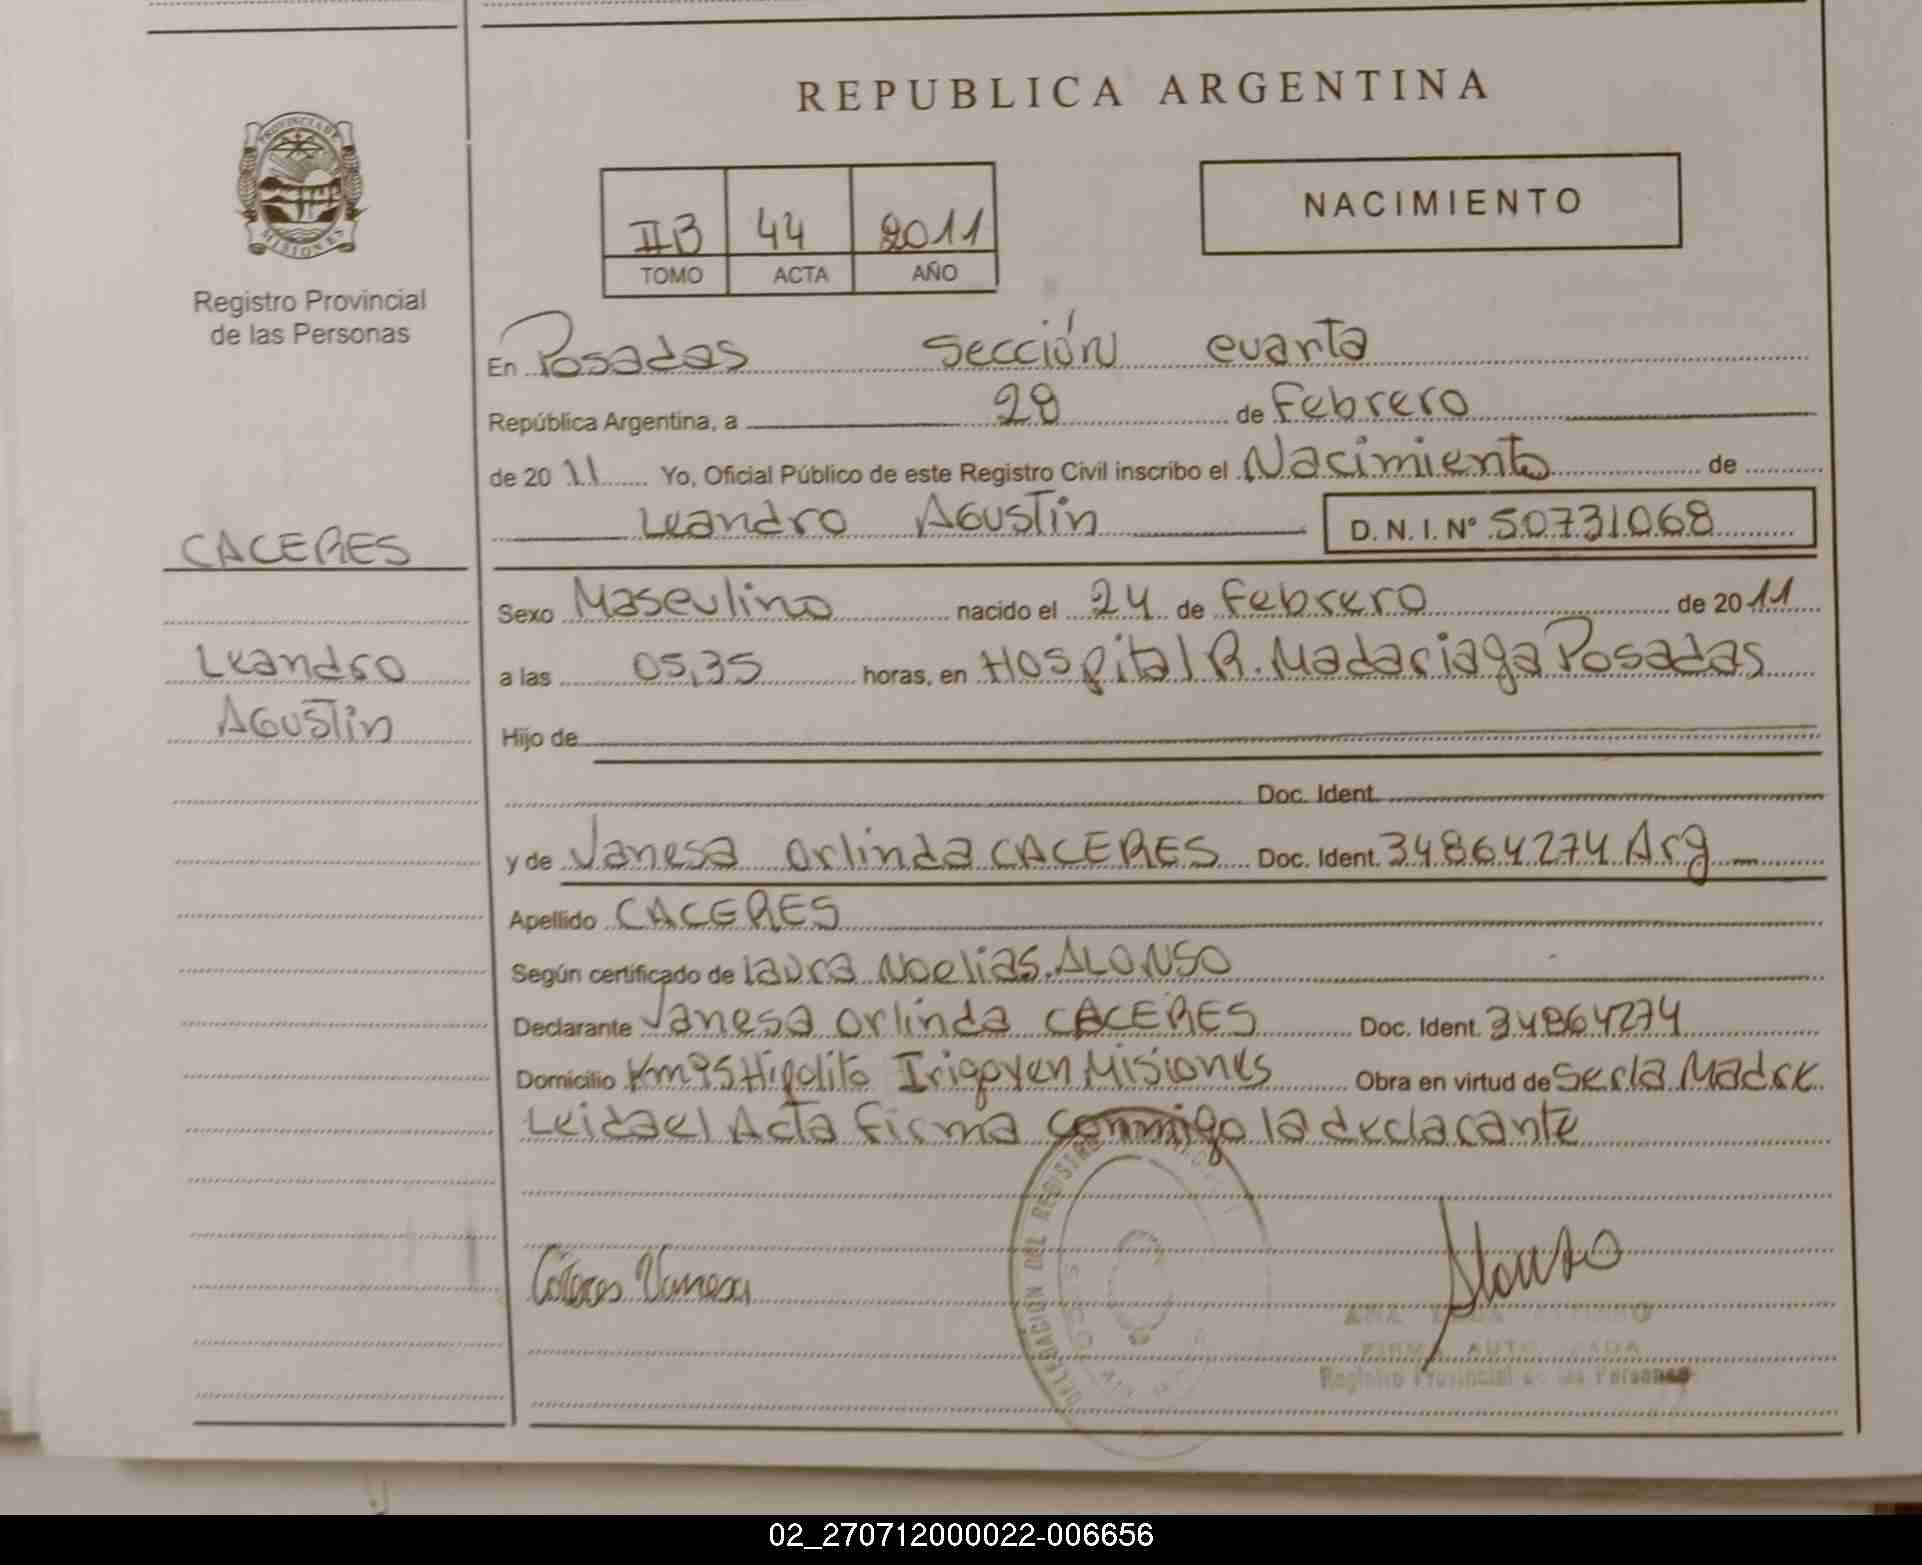 REPUBLICA ARGENTINA
PROVINCIA DE
MISIONES
Registro Provincial
de las Personas
NACIMIENTO
IIB 44 2011
TOMO ACTA AÑO
En Posadas Sección cuarta
República Argentina, a 28 de Febrero
de 2011 Yo, Oficial Público de este Registro Civil inscribo el Nacimiento de
Leandro Agustín
D.N.I.Nº 50731068
CACERES
Leandro
Agustín
Sexo Masculino nacido el 24 de Febrero de 2011
a las 05,35 horas, en Hospital R. Madariaga Posadas
Hijo de
Doc. Ident.
y de Vanesa Orlinda CACERES Doc. Ident. 34864274 Arg
Apellido CACERES
Según certificado de Laura Noelia S. ALONSO
Declarante Vanesa Orlinda CACERES Doc. Ident. 34864274
Domicilio Km 95 Hipolito Irigoyen Misiones Obra en virtud de Ser la Madre
Leida el Acta firma conmigo la declarante
DELEGACIÓN DEL REGISTRO
Caceres Vanesa
Alonso
ANA
FIRMA AUTORIZADA
Registro Provincial de las Personas
02_270712000022-006656